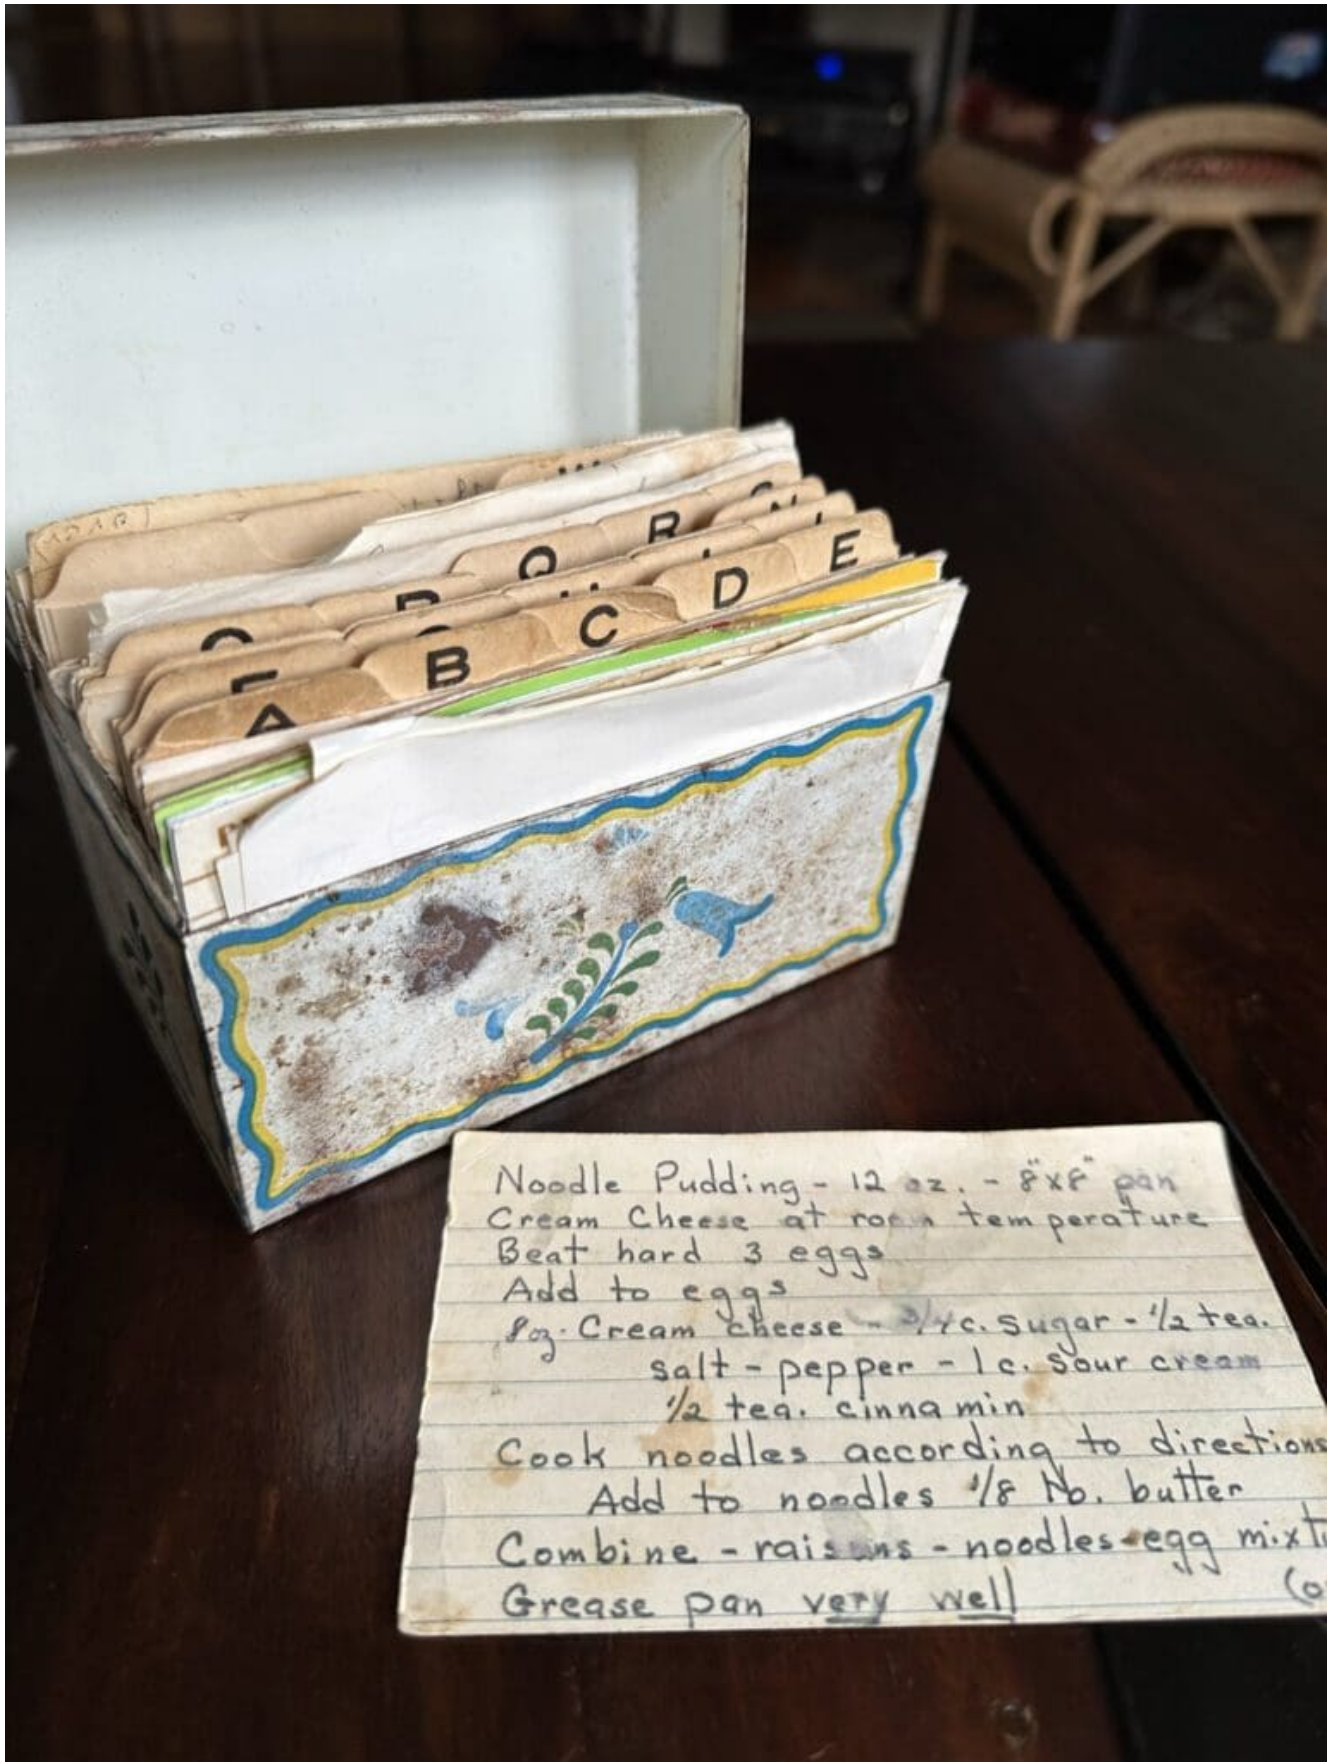 R
Q
E
D
C
B
A
Noodle Pudding - 12 oz. - 8"x8" pan
Cream Cheese at room temperature
Beat hard 3 eggs
Add to eggs
8oz. Cream cheese - 3/4 c. sugar - 1/2 tea.
salt - pepper - 1 c. sour cream
1/2 tea. cinnamin
Cook noodles according to directions
Add to noodles 1/8 lb. butter
Combine - raisins - noodles - egg mixt
Grease pan very well (o